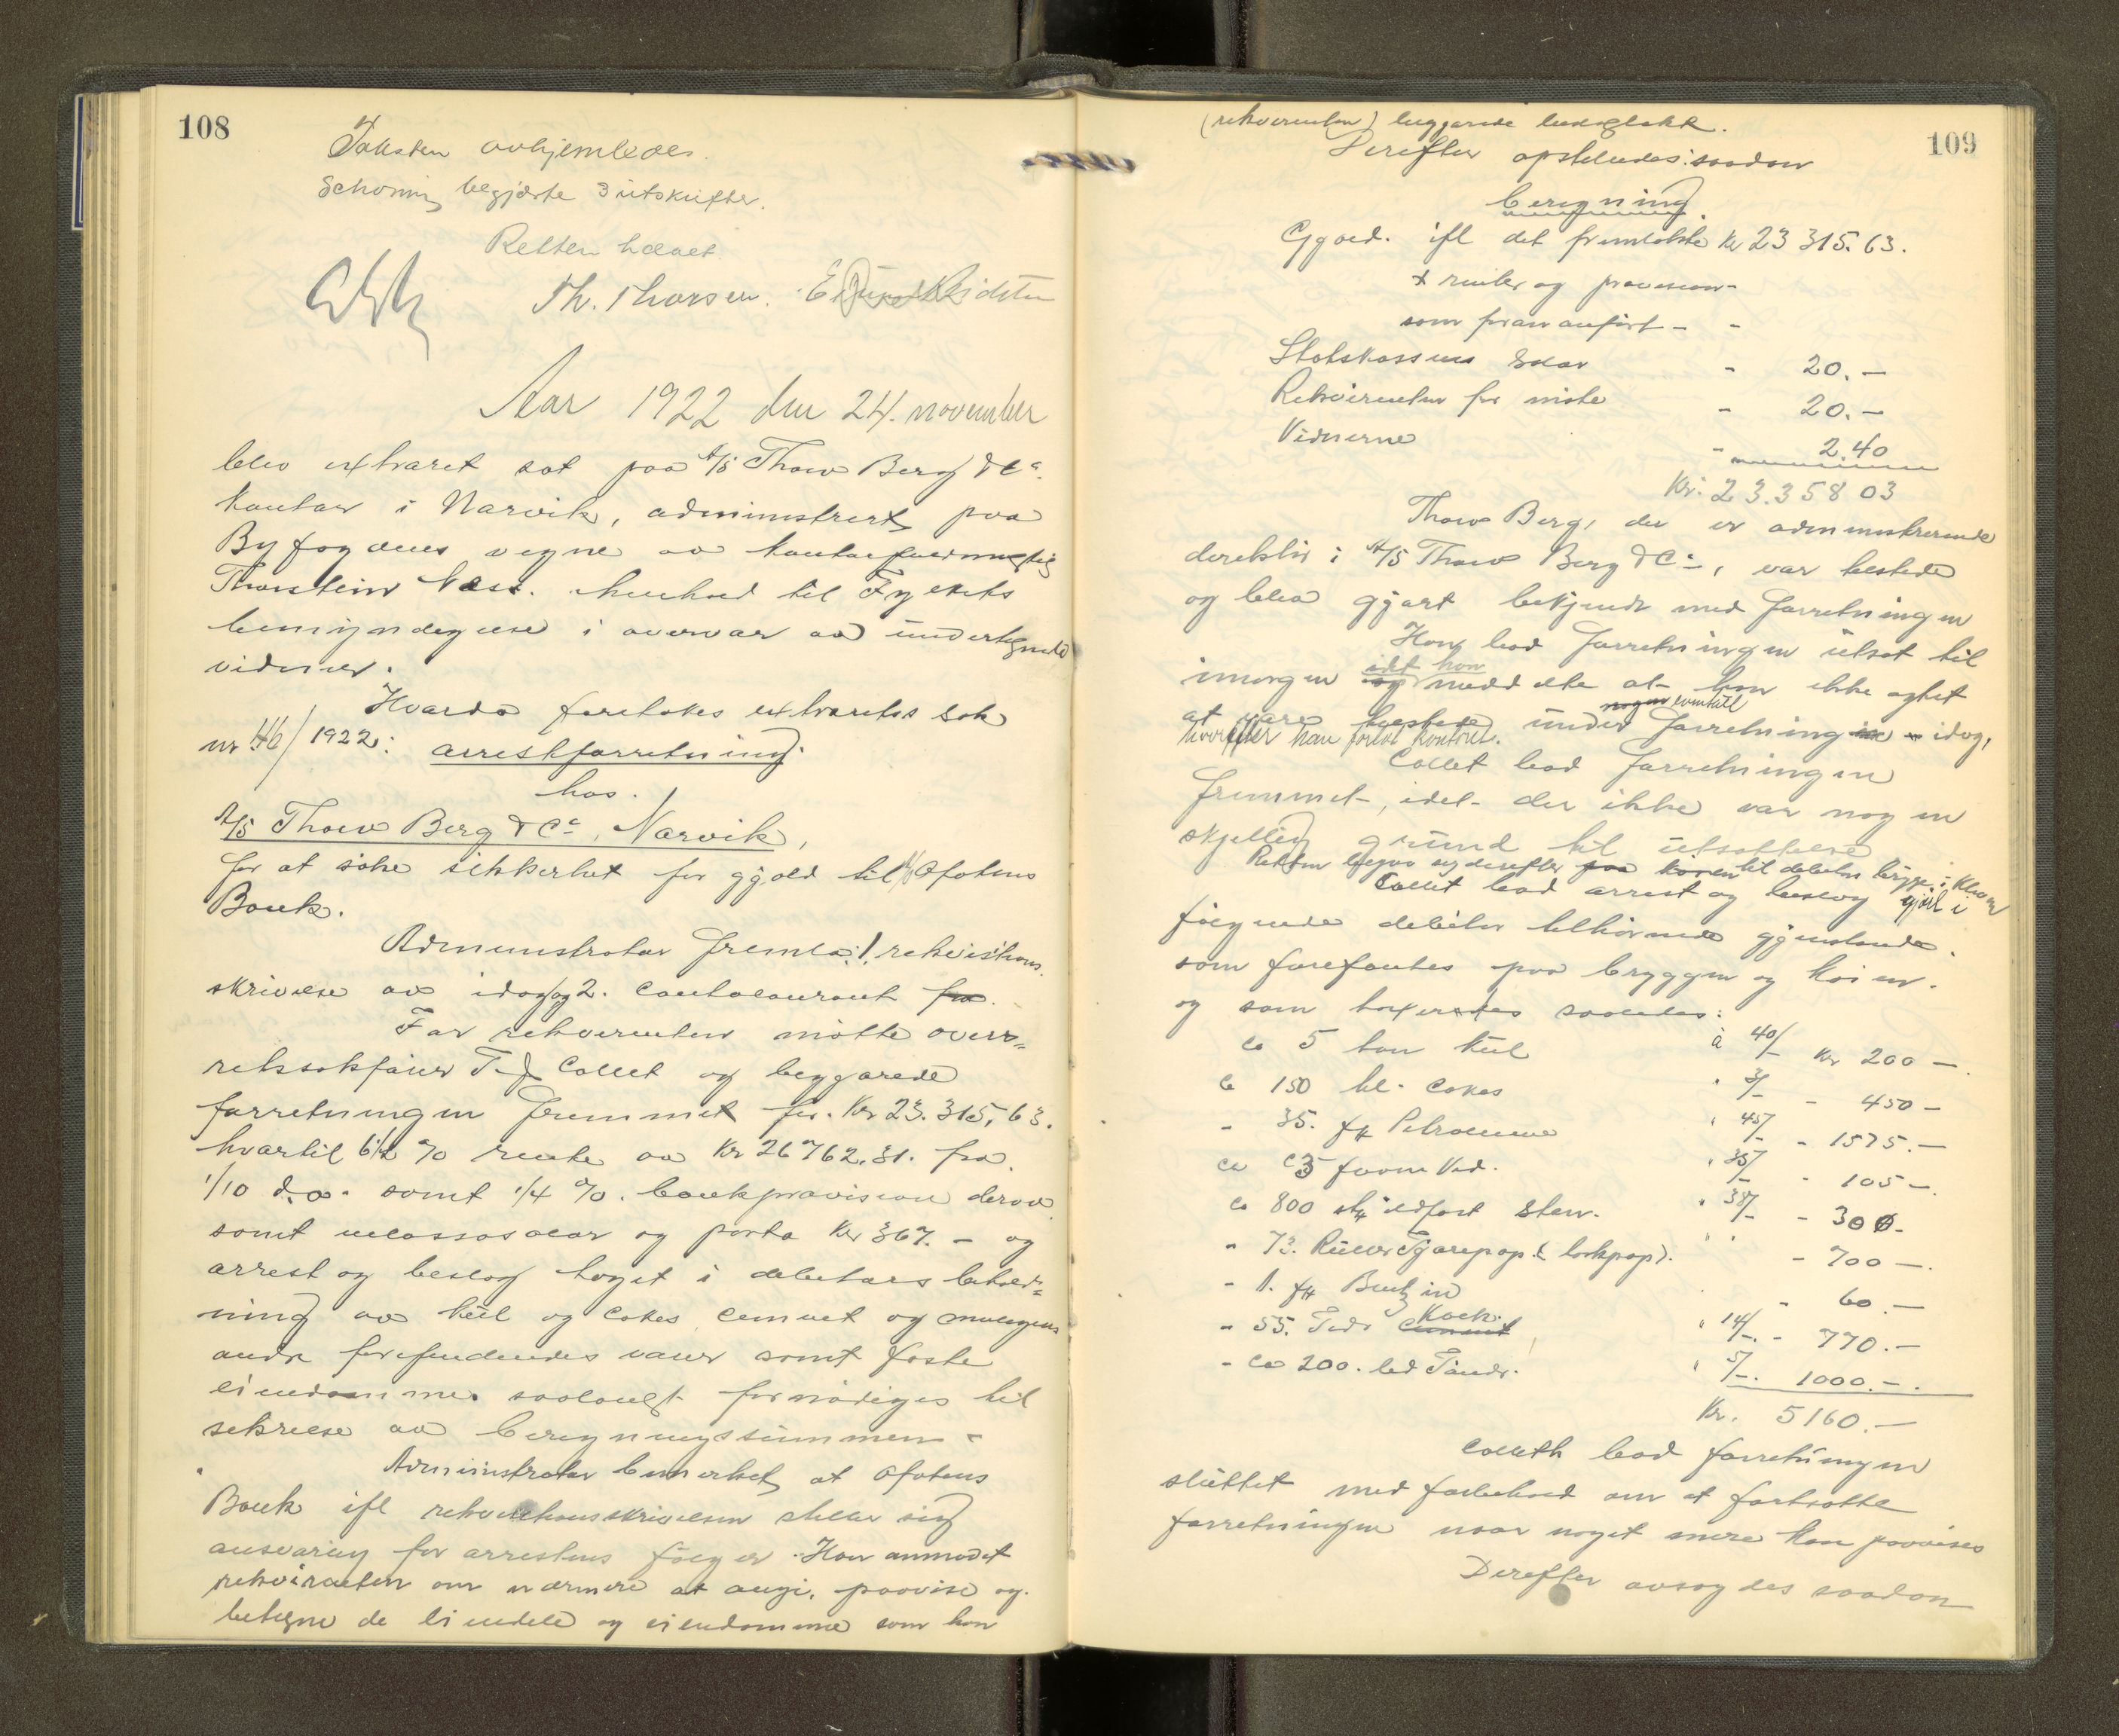 108
Taksten avhjemledes.
Schøning begjærte 3 utskrifter.
Retten hævet.
Th. Thorsen.
Aar 1922 den 24. november
blev extraret sat paa A/S Thow Berg & Co
kontor i Narvik, administrert paa
Byfogdens vegne av kontorfuldmægtig
Thorstein Næss. henhold til Fylkets
bemyndigelse i overvær av undertegnede
vidner.
Hvorda foretokes extrarets sak
nr 46/1922: arrestforretning
hos.
A/S Thow Berg & Co, Narvik,
for at søke sikkerhet for gjæld til A/S Ofotens
Bank.
Administrator fremla: 1. rekvisitions
skrivelse av idag og 2. contocourant fra.
For rekvirenten møtte overs-
retssakfører T. J. Collet og begjærede
forretningen fremmet for. Kr 23.315,63.
hvartil 6½ % rente av Kr 26762.31. fra
1/10 d.a. samt ¼ %. bankprovision derav
samt incassosalær og porto Kr 367.- og
arrest og beslag taget i debitors behold-
ning av kul og cokes, cement og muligens
andre forefindendes varer samt faste
eiendomme. saalangt fornødiges til
sikrelse av beregningssummen.
Administrator bemerket at Ofotens
Bank ifl rekvisitionsskrivelsen steller sig
ansvarlig for arrestens følger. Han anmodet
rekvirenten om nærmere at angi, paavise og
betegne de eiendele og eiendomme som han
109
(rekvirenten) begjærede beslaglakt.
Derefter opstilledes saadan
beregning.
Gjæld. ifl det fremlakte Kr 23 315.63.
+ renter og provision-
som foran anført - -
Statskassens salær - 20.-
Rekvirenten for møte - 20.-
Vidnerne - 2.40
Kr. 23.358 03
Thow Berg, der er administrerende
direktør i A/S Thow Berg & Co, var tilstede
og blev gjort bekjendt med forretningen
Han bad forretningen utsat til
imorgen og idet han meddelte at han ikke agtet
at være tilstede under nogen eventuell forretning idag,
hvorefter han forlot kontoret.
Collet bad forretningen
fremmet, idet der ikke var nogen
skjellig grund til utsættelse
Retten begav sig derefter paa kaien til debitors brygge i
Collet bad arrest og beslag gjort i
følgende debitor tilhørende gjenstande
som forefantes paa bryggen og kaien.
og som taxertes saaledes:
ca 5 ton kul à 40/- Kr 200 -.
ca 150 hl. cokes " 3/- - 450 -
- 35. ft Petroleum " 45/- - 1575.-
ca 3 favne Ved. " 35/- - 105 -.
ca 800 stk ildfast sten. " 38/- - 300-
- 72. Ruller Tjærepap. (takpap). " " - 700 -.
- 1. ft Benzin - 60.-
- 55. Tdr cement Koek. " 14/-. - 770.-
- ca 200. led Tøndr. " 5/-. 1000.-.
Kr. 5160.-
Colleth bad forretningen
sluttet med forbehold om at fortsætte
forretningen naar noget mere kan paavises
Derefter avsagdes saadan